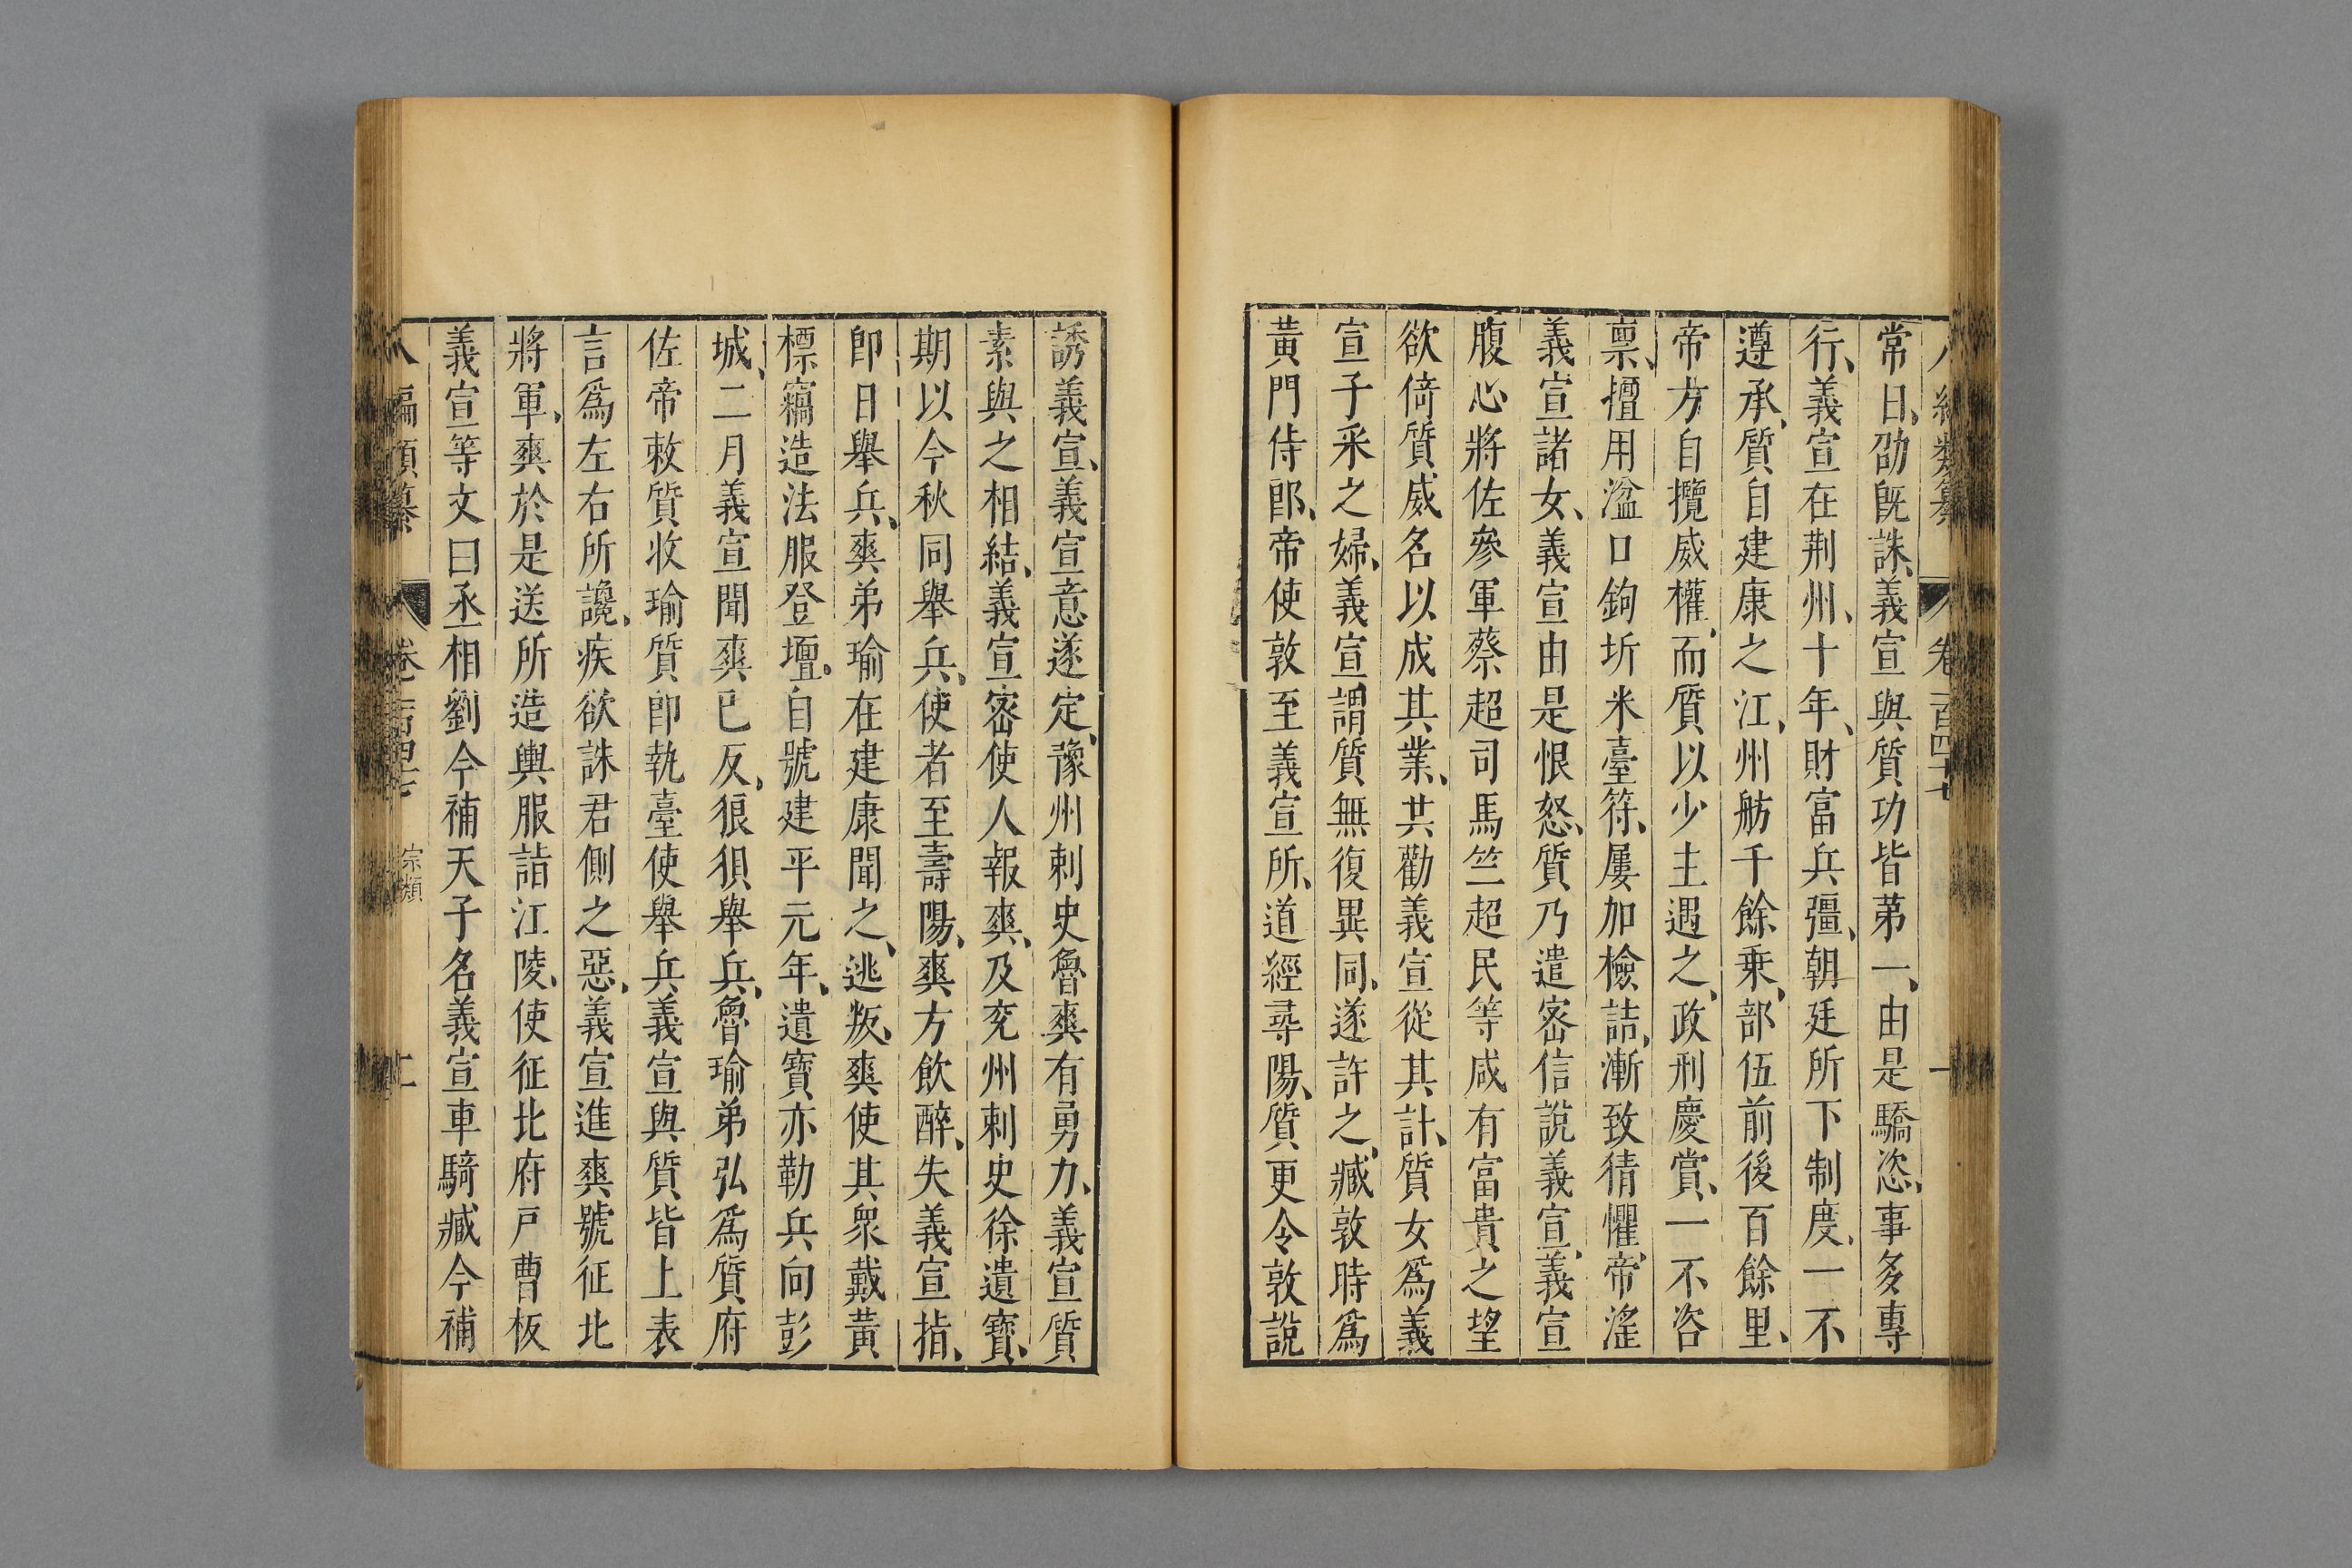 常日、劭旣誅、義宣與質功皆第一、由是驕恣、事多專
行、義宣在荆州、十年、財富兵彊、朝廷所下制度、一不
遵承、質自建康之江、州舫千餘乗、部伍前後百餘里、
帝方自攬威權、而質以少主遇之、政刑慶賞、一不咨
禀、擅用湓口鉤圻米臺符、屢加檢詰、漸致猜懼、帝淫
義宣諸女、義宣由是恨怒、質乃遣密信說義宣、義宣
腹心將佐參軍蔡超司馬竺超民等咸有富貴之望
欲倚質威名以成其業、共勸義宣從其計、質女爲義
宣子采之婦、義宣謂質無復異同、遂許之、臧敦時爲
黃門侍郎、帝使敦至義宣所、道經尋陽、質更令敦說
誘義宣、義宣意遂定、豫州刺史魯爽有勇力、義宣質
素與之相結、義宣密使人報爽、及兖州刺史徐遺寶、
期以今秋同舉兵、使者至壽陽、爽方飲醉、失義宣指、
卽日舉兵、爽弟瑜在建康聞之、逃叛、爽使其衆戴黃
標竊造法服登壇、自號建平元年、遺寶亦勒兵向彭
城、二月義宣聞爽已反、狼狽舉兵、魯瑜弟弘爲質府
佐帝敕質收瑜質卽執臺使舉兵義宣與質皆上表
言爲左右所讒、疾欲誅君側之惡、義宣進爽號征北
將軍、爽於是送所造輿服詣江陵、使征北府戸曹板
義宣等文曰丞相劉今補天子名義宣車騎臧今補
編類纂 卷一百四十七 宗類